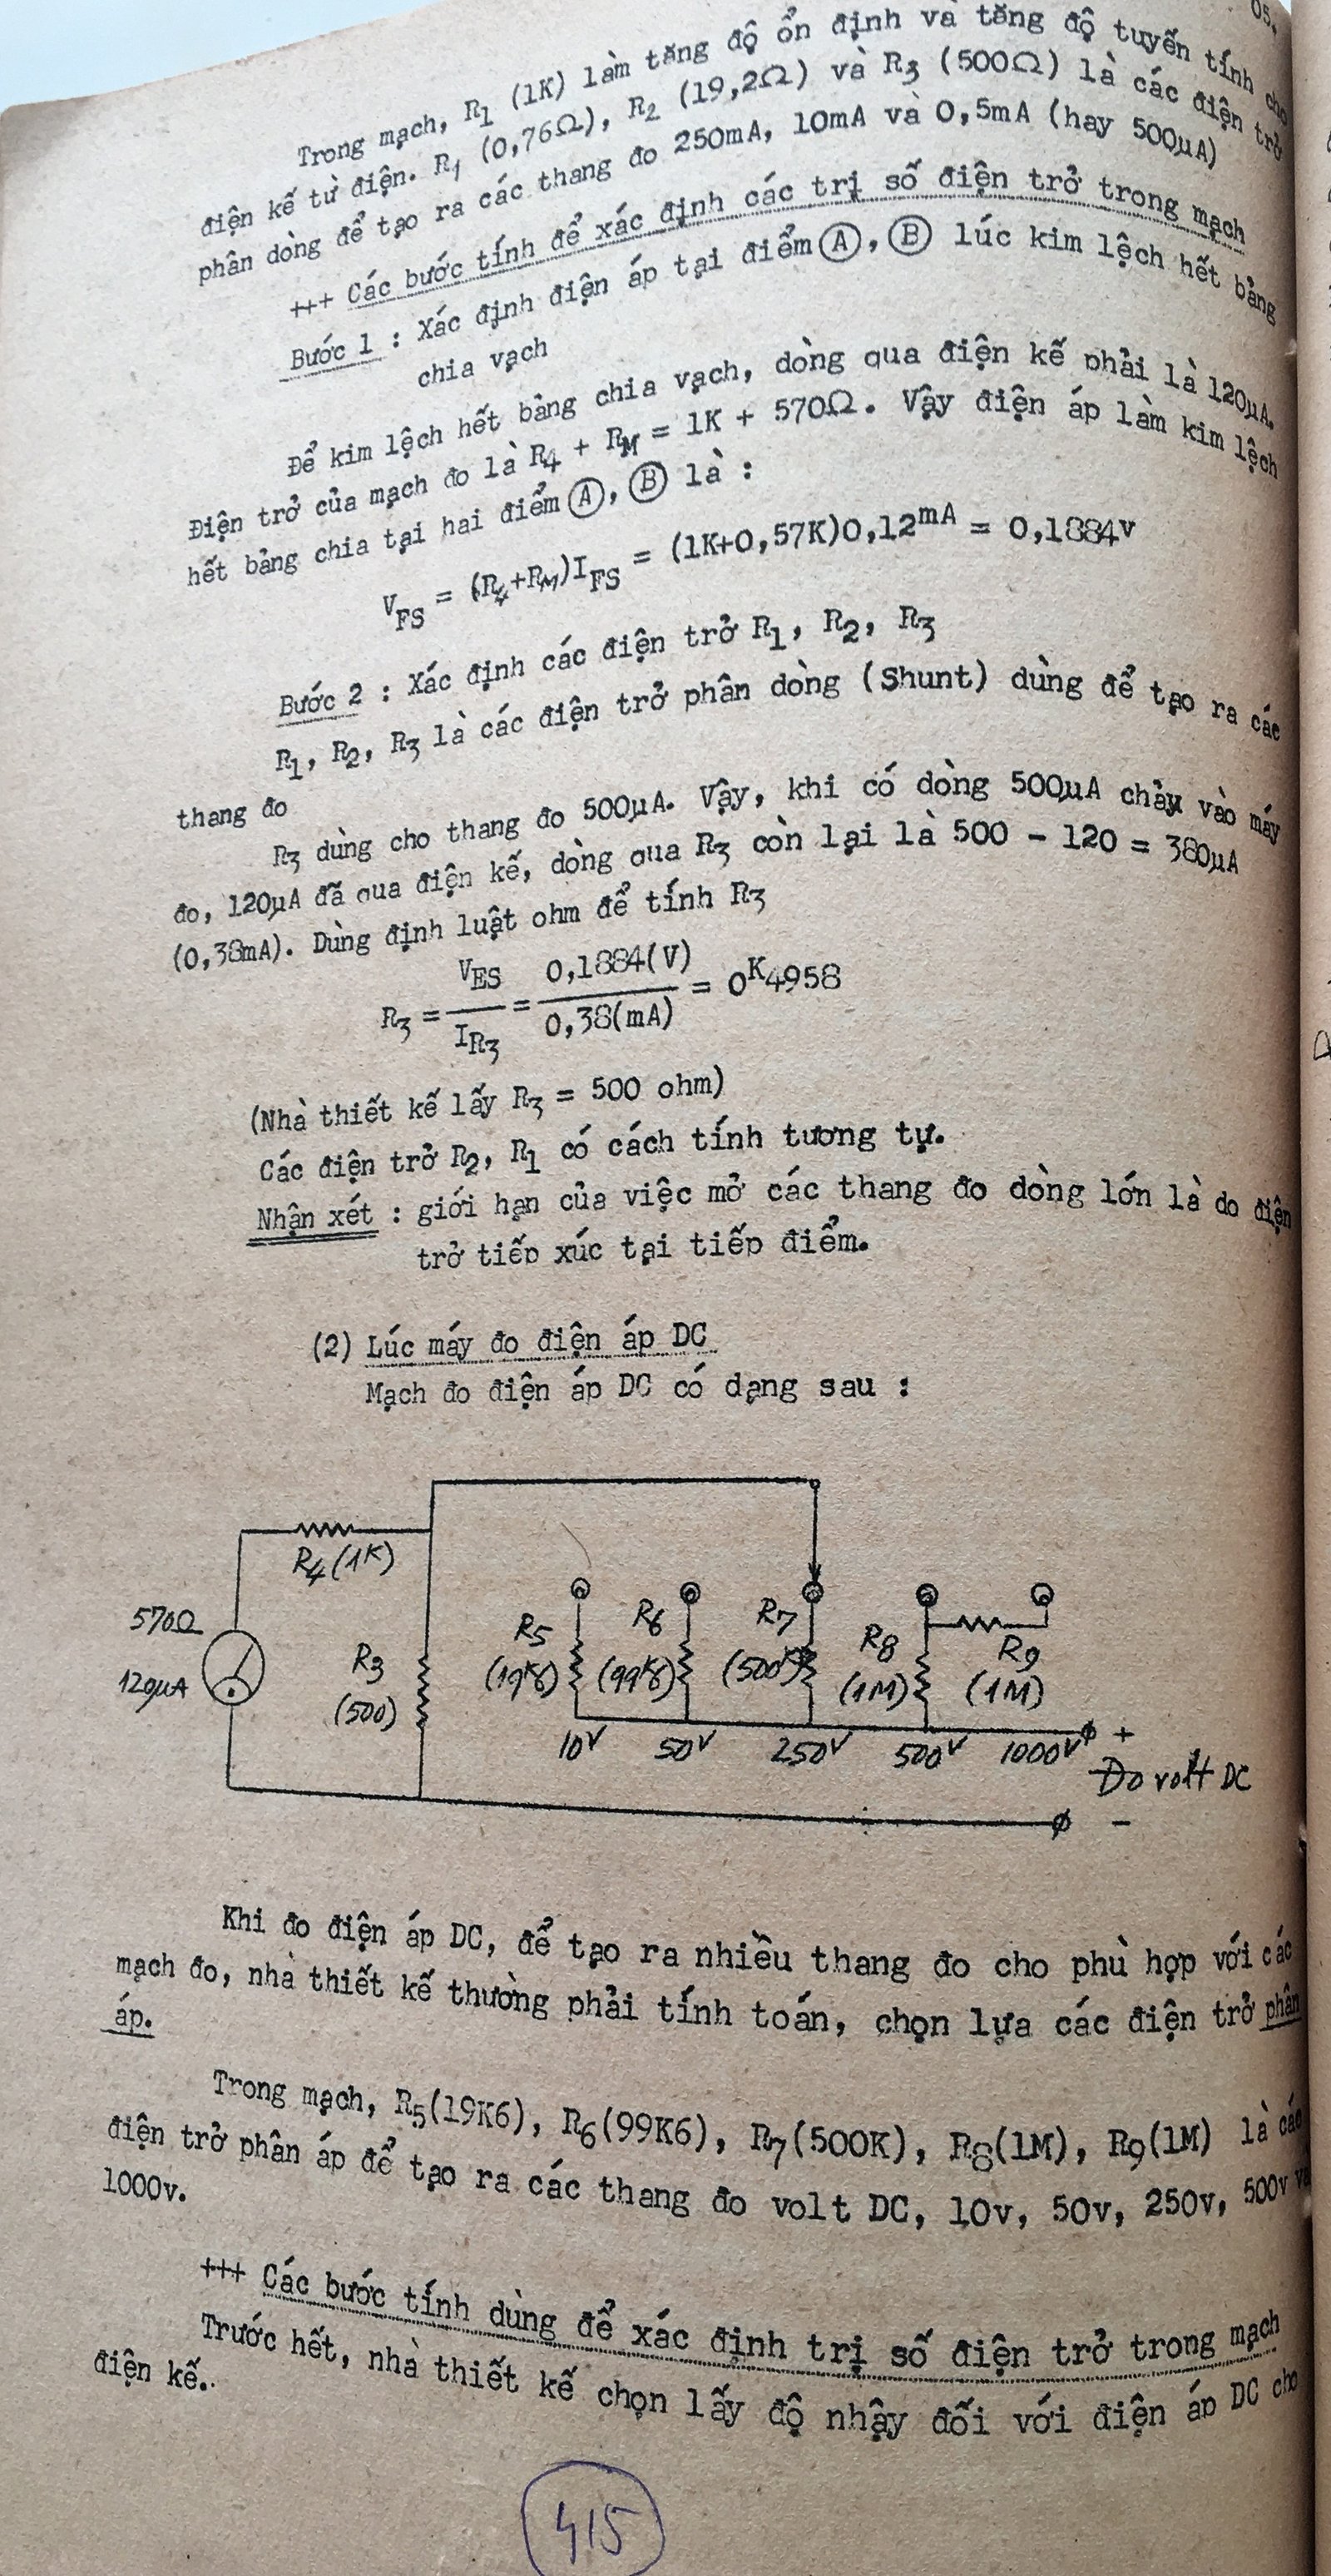 05.
Trong mạch, R1 (1K) làm tăng độ ổn định và tăng độ tuyến tính cho
điện kế từ điện. R1 (0,76Ω), R2 (19,2Ω) và R3 (500Ω) là các điện trở
phân dòng để tạo ra các thang đo 250mA, 10mA và 0,5mA (hay 500µA)
+++ Các bước tính để xác định các trị số điện trở trong mạch
Bước 1 : Xác định điện áp tại điểm (A), (B) lúc kim lệch hết bảng
chia vạch
Để kim lệch hết bảng chia vạch, dòng qua điện kế phải là 120µA.
Điện trở của mạch đo là R4 + RM = 1K + 570Ω. Vậy điện áp làm kim lệch
hết bảng chia tại hai điểm (A), (B) là :
VFS = (R4+RM)IFS = (1K+0,57K)0,12mA = 0,1884v
Bước 2 : Xác định các điện trở R1, R2, R3
R1, R2, R3 là các điện trở phân dòng (Shunt) dùng để tạo ra các
thang đo
R3 dùng cho thang đo 500µA. Vậy, khi có dòng 500µA chảy vào máy
đo, 120µA đã qua điện kế, dòng qua R3 còn lại là 500 - 120 = 380µA
(0,38mA). Dùng định luật ohm để tính R3
R3 = VES / IR3 = 0,1884(V) / 0,38(mA) = 0K4958
(Nhà thiết kế lấy R3 = 500 ohm)
Các điện trở R2, R1 có cách tính tương tự.
Nhận xét : giới hạn của việc mở các thang đo dòng lớn là do điện
trở tiếp xúc tại tiếp điểm.
(2) Lúc máy đo điện áp DC
Mạch đo điện áp DC có dạng sau :
R4 (1K)
570Ω
120µA
R3
(500)
R5
(19K6)
R6
(99K6)
R7
(500K)
R8
(1M)
R9
(1M)
10V 50V 250V 500V 1000V +
Đo volt DC
-
Khi đo điện áp DC, để tạo ra nhiều thang đo cho phù hợp với các
mạch đo, nhà thiết kế thường phải tính toán, chọn lựa các điện trở phân
áp.
Trong mạch, R5(19K6), R6(99K6), R7(500K), R8(1M), R9(1M) là các
điện trở phân áp để tạo ra các thang đo volt DC, 10v, 50v, 250v, 500v và
1000v.
+++ Các bước tính dùng để xác định trị số điện trở trong mạch
Trước hết, nhà thiết kế chọn lấy độ nhậy đối với điện áp DC cho
điện kế.
415